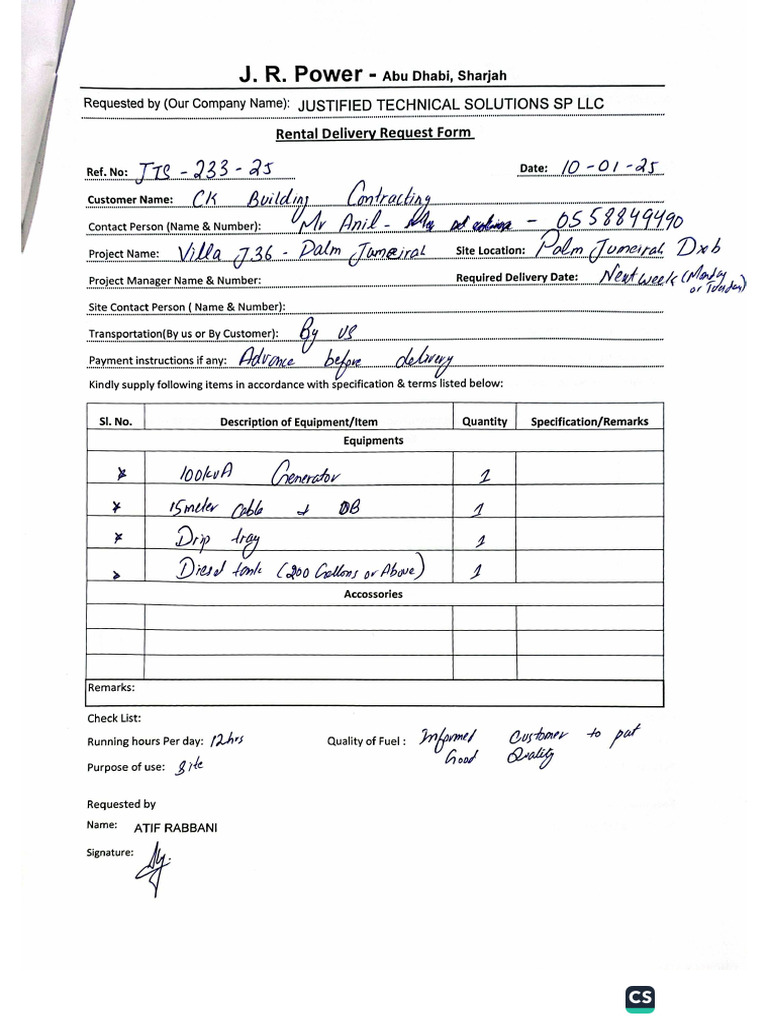 J. R. Power - Abu Dhabi, Sharjah
Requested by (Our Company Name): JUSTIFIED TECHNICAL SOLUTIONS SP LLC
Rental Delivery Request Form
Ref. No: JTS - 233 - 25 Date: 10 - 01 - 25
Customer Name: CK Building Contracting
Contact Person (Name & Number): Mr Anil - - 0558849490
Project Name: Villa J36 - Palm Jumeirah Site Location: Palm Jumeirah Dxb
Project Manager Name & Number: Required Delivery Date: Next week (Monday or Tuesday)
Site Contact Person ( Name & Number):
Transportation(By us or By Customer): By us
Payment instructions if any: Advance before delivery
Kindly supply following items in accordance with specification & terms listed below:
Sl. No. Description of Equipment/Item Quantity Specification/Remarks
Equipments
100kvA Generator 1
15meter Cable + DB 1
Drip tray 1
Diesel tank (200 Gallons or Above) 1
Accossories
Remarks:
Check List:
Running hours Per day: 12hrs Quality of Fuel : Informed Customer to put
Good Quality
Purpose of use: Site
Requested by
Name: ATIF RABBANI
Signature:
CS